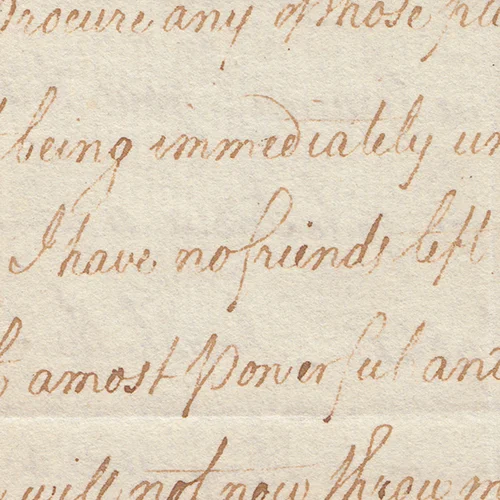 procure any of those
being immediately
I have no friends left
a most Powerful and
will not now throw